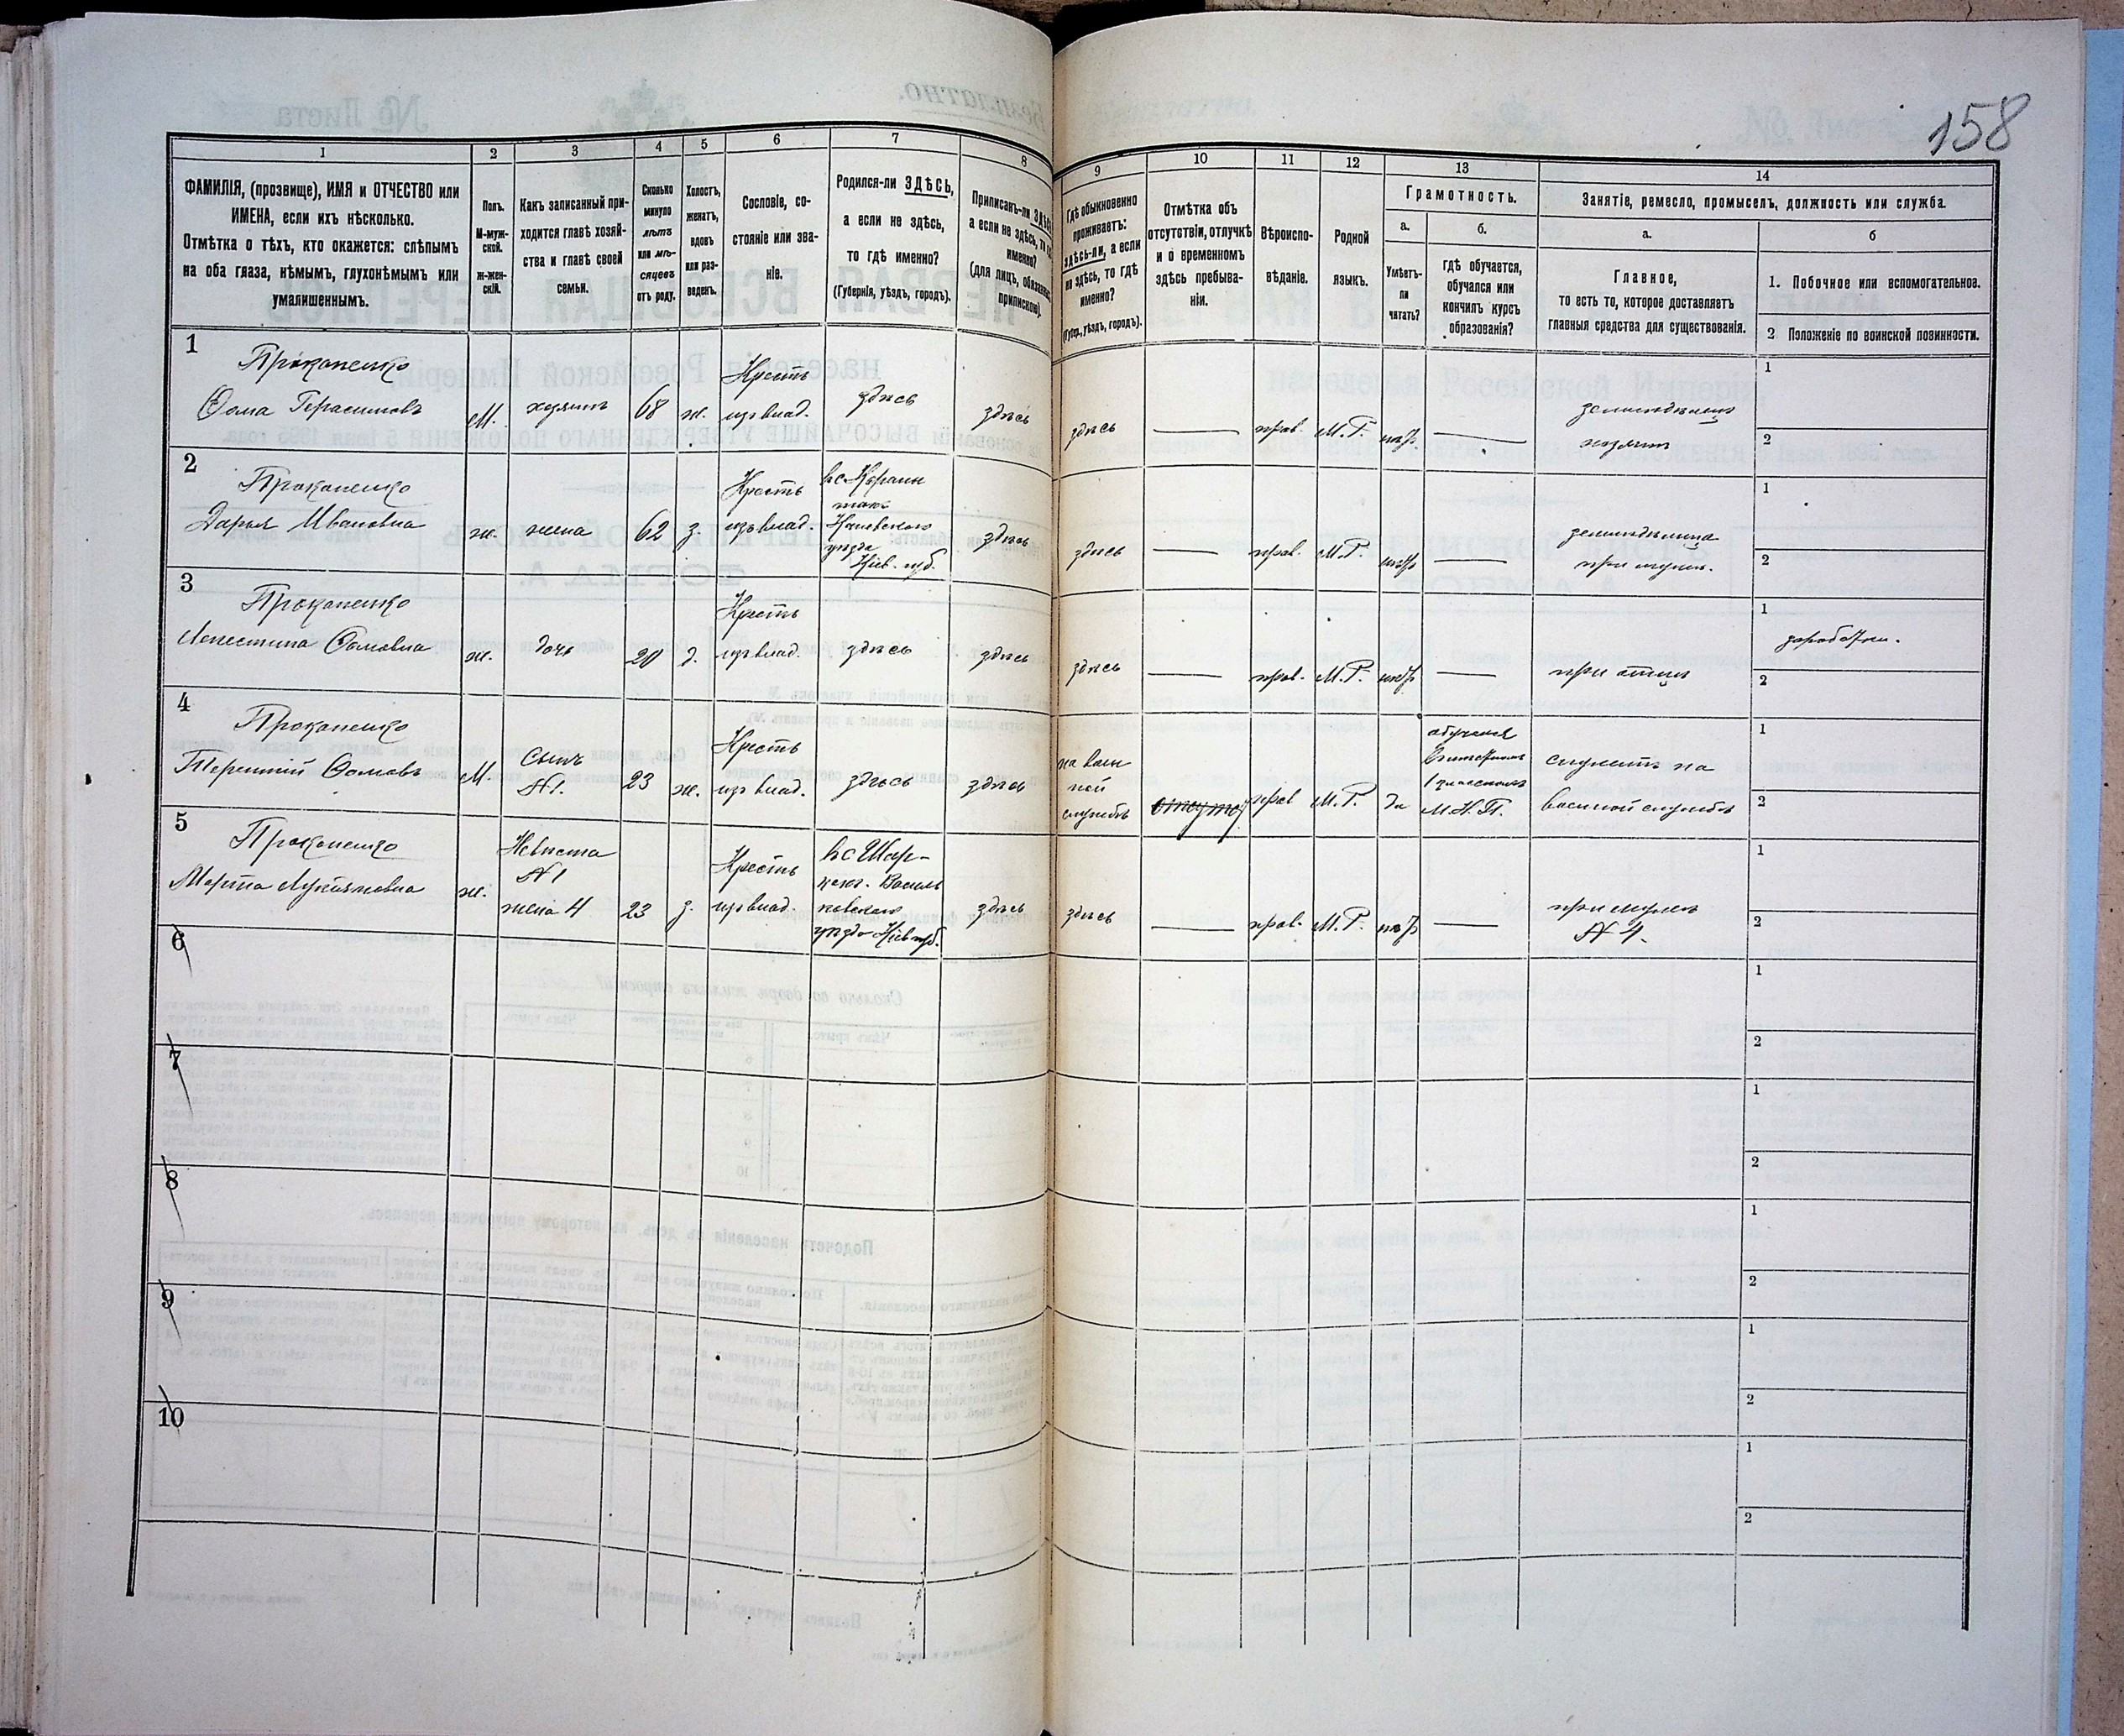 158
1
2
3
4
5
6
7
8
9
10
11
12
13
14
ФАМИЛІЯ, (прозвище), ИМЯ и ОТЧЕСТВО или
ИМЕНА, если ихъ нѣсколько.
Отмѣтка о тѣхъ, кто окажется: слѣпымъ
на оба глаза, нѣмымъ, глухонѣмымъ или
умалишеннымъ.
Полъ.
М-муж-
ской.
ж-жен-
скій.
Какъ записанный при-
ходится главѣ хозяй-
ства и главѣ своей
семьи.
Сколько
минуло
лѣтъ
или мѣ-
сяцевъ
отъ роду.
Холостъ,
женатъ,
вдовъ
или раз-
веденъ.
Сословіе, со-
стояніе или зва-
ніе.
Родился-ли ЗДѢСЬ,
а если не здѣсь,
то гдѣ именно?
(Губернія, уѣздъ, городъ).
Приписанъ-ли
а если не здѣсь,
именно?
(для лицъ,
припискою).
Гдѣ обыкновенно
проживаетъ:
здѣсь-ли, а если
не здѣсь, то гдѣ
именно?
(Губер., уѣздъ, городъ).
Отмѣтка объ
отсутствіи, отлучкѣ
и о временномъ
здѣсь пребыва-
ніи.
Вѣроиспо-
вѣданіе.
Родной
языкъ.
Грамотность.
а.
б.
Умѣетъ-
ли
читать?
Гдѣ обучается,
обучался или
кончилъ курсъ
образованія?
Занятіе, ремесло, промыселъ, должность или служба.
а.
б
Главное,
то есть то, которое доставляетъ
главныя средства для существованія.
1. Побочное или вспомогательное.
2 Положеніе по воинской повинности.
1
Прокопенко
Ѳома Герасимовъ
М.
хозяинъ
68
ж.
Крестъ
изъ влад.
здѣсь
здѣсь
здѣсь
прав.
М.Р.
нѣтъ
земледѣлецъ
хозяинъ
1
2
2
Прокопенко
Дарья Ивановна
ж.
жена
62
з.
Крестъ
изъ влад.
Каневскаго
уѣзда
Кіев. губ.
здѣсь
здѣсь
прав.
М.Р.
нѣтъ
земледѣлица
при мужѣ.
1
2
3
Прокопенко
Ѳомовна
ж.
дочь
20
д.
Крестъ
изъ влад.
здѣсь
здѣсь
здѣсь
прав.
М.Р.
нѣтъ
при отцѣ
1
2
4
Прокопенко
Терентій Ѳомовъ
М.
Сынъ
№1.
23
ж.
Крестъ
изъ влад.
здѣсь
здѣсь
на воен
ной
службѣ
прав
М.Р.
да
обучался
1 классномъ
М.Н.П.
служитъ на
военной службѣ
1
2
5
Прокопенко
Марѳа Лукіяновна
ж.
Невѣста
№1
жена 4
23
з.
Крестъ
изъ влад.
Василь
ковскаго
уѣзда Кіев губ.
здѣсь
здѣсь
прав.
М.Р.
нѣтъ
при мужѣ
№ 4.
1
2
6
1
2
7
1
2
8
1
2
9
1
2
10
1
2